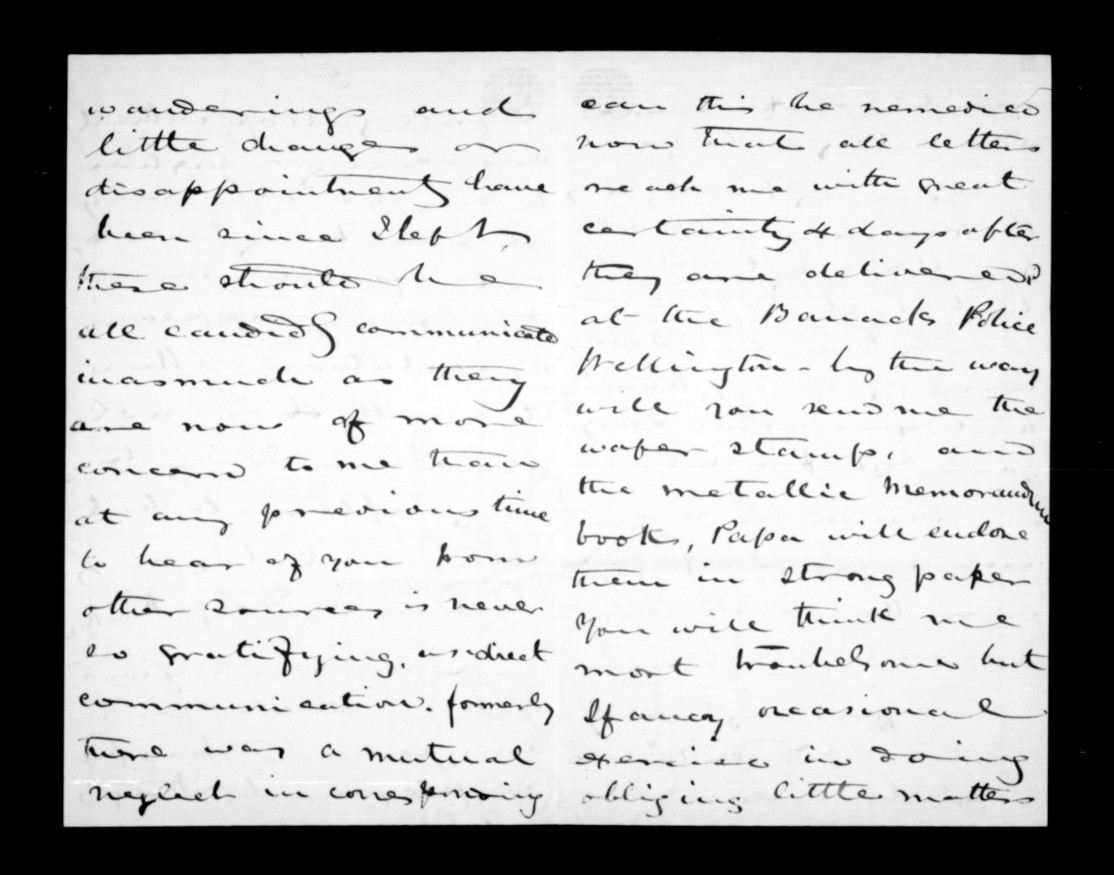 wanderings and
little changes or
disappointments have
been since I left,
these should be
all candidly communicated
inasmuch as they
are now of more
concern to me than
at any previous time
to hear of you from
other sources is never
so gratifying, as direct
communication. formerly
there was a mutual
neglect in corresponding
can this be remedied
now that all letters
reach me with great
certainty 4 days after
they are delivered
at the Barracks Police
Wellington - by the way
will you send me the
wafer stamp, and
the metallic Memorandum
book, Papa will enclose
them in strong paper
You will think me
most troublesome but
I fancy occasional
exercise in doing
obliging little matters